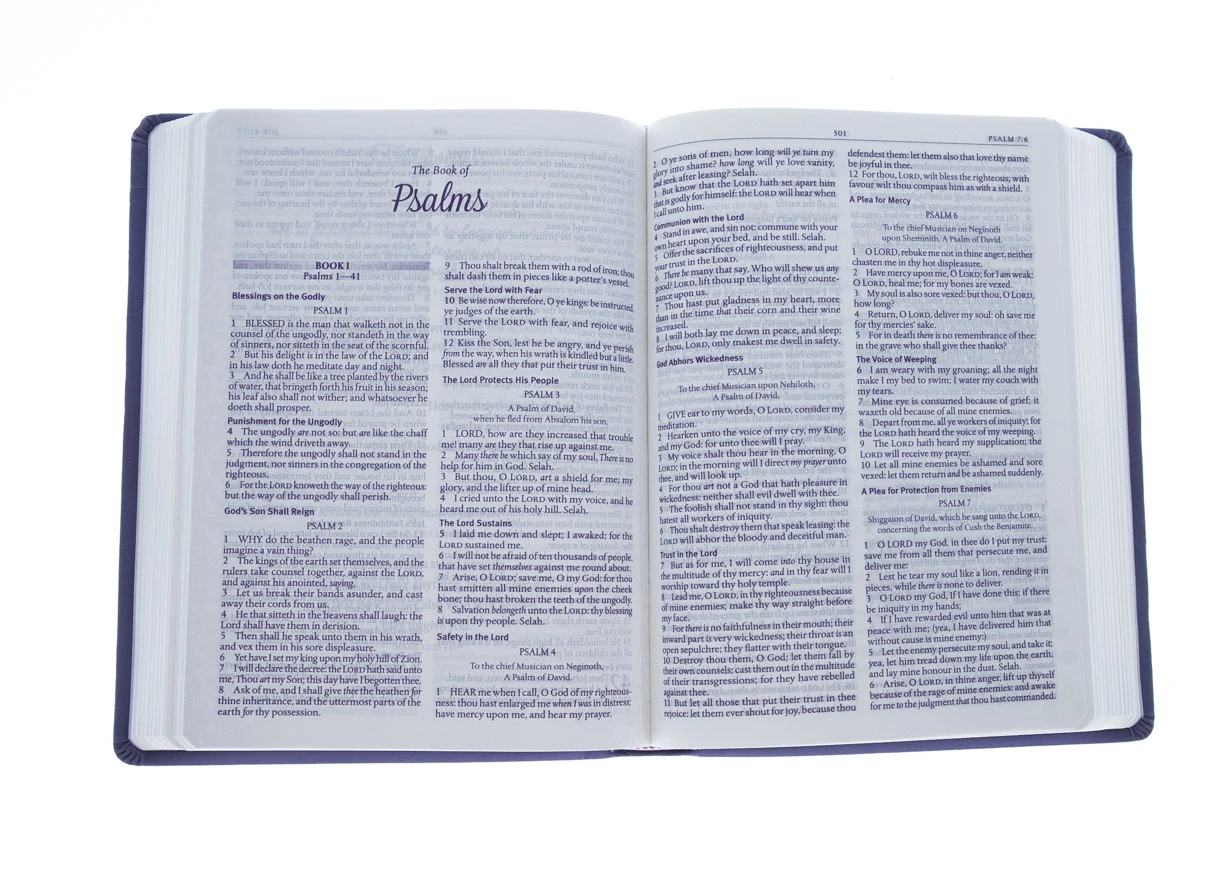 The Book of
Psalms
BOOK I
Psalms 1—41
Blessings on the Godly
PSALM 1
1 BLESSED is the man that walketh not in the
counsel of the ungodly, nor standeth in the way
of sinners, nor sitteth in the seat of the scornful.
2 But his delight is in the law of the LORD; and
in his law doth he meditate day and night.
3 And he shall be like a tree planted by the rivers
of water, that bringeth forth his fruit in his season;
his leaf also shall not wither; and whatsoever he
doeth shall prosper.
Punishment for the Ungodly
4 The ungodly are not so: but are like the chaff
which the wind driveth away.
5 Therefore the ungodly shall not stand in the
judgment, nor sinners in the congregation of the
righteous.
6 For the LORD knoweth the way of the righteous:
but the way of the ungodly shall perish.
God's Son Shall Reign
PSALM 2
1 WHY do the heathen rage, and the people
imagine a vain thing?
2 The kings of the earth set themselves, and the
rulers take counsel together, against the LORD,
and against his anointed, saying,
3 Let us break their bands asunder, and cast
away their cords from us.
4 He that sitteth in the heavens shall laugh: the
Lord shall have them in derision.
5 Then shall he speak unto them in his wrath,
and vex them in his sore displeasure.
6 Yet have I set my king upon my holy hill of Zion.
7 I will declare the decree: the LORD hath said unto
me, Thou art my Son; this day have I begotten thee.
8 Ask of me, and I shall give thee the heathen for
thine inheritance, and the uttermost parts of the
earth for thy possession.
9 Thou shalt break them with a rod of iron; thou
shalt dash them in pieces like a potter's vessel.
Serve the Lord with Fear
10 Be wise now therefore, O ye kings: be instructed,
ye judges of the earth.
11 Serve the LORD with fear, and rejoice with
trembling.
12 Kiss the Son, lest he be angry, and ye perish
from the way, when his wrath is kindled but a little.
Blessed are all they that put their trust in him.
The Lord Protects His People
PSALM 3
A Psalm of David,
when he fled from Absalom his son.
1 LORD, how are they increased that trouble
me! many are they that rise up against me.
2 Many there be which say of my soul, There is no
help for him in God. Selah.
3 But thou, O LORD, art a shield for me; my
glory, and the lifter up of mine head.
4 I cried unto the LORD with my voice, and he
heard me out of his holy hill. Selah.
The Lord Sustains
5 I laid me down and slept; I awaked; for the
LORD sustained me.
6 I will not be afraid of ten thousands of people,
that have set themselves against me round about.
7 Arise, O LORD; save me, O my God: for thou
hast smitten all mine enemies upon the cheek
bone; thou hast broken the teeth of the ungodly.
8 Salvation belongeth unto the LORD: thy blessing
is upon thy people. Selah.
Safety in the Lord
PSALM 4
To the chief Musician on Neginoth,
A Psalm of David.
1 HEAR me when I call, O God of my righteous-
ness: thou hast enlarged me when I was in distress;
have mercy upon me, and hear my prayer.
501
PSALM 7:6
2 O ye sons of men, how long will ye turn my
glory into shame? how long will ye love vanity,
and seek after leasing? Selah.
3 But know that the LORD hath set apart him
that is godly for himself: the LORD will hear when
I call unto him.
Communion with the Lord
4 Stand in awe, and sin not: commune with your
own heart upon your bed, and be still. Selah.
5 Offer the sacrifices of righteousness, and put
your trust in the LORD.
6 There be many that say, Who will shew us any
good? LORD, lift thou up the light of thy counte-
nance upon us.
7 Thou hast put gladness in my heart, more
than in the time that their corn and their wine
increased.
8 I will both lay me down in peace, and sleep:
for thou, LORD, only makest me dwell in safety.
God Abhors Wickedness
PSALM 5
To the chief Musician upon Nehiloth,
A Psalm of David.
1 GIVE ear to my words, O LORD, consider my
meditation.
2 Hearken unto the voice of my cry, my King,
and my God: for unto thee will I pray.
3 My voice shalt thou hear in the morning, O
LORD; in the morning will I direct my prayer unto
thee, and will look up.
4 For thou art not a God that hath pleasure in
wickedness: neither shall evil dwell with thee.
5 The foolish shall not stand in thy sight: thou
hatest all workers of iniquity.
6 Thou shalt destroy them that speak leasing: the
LORD will abhor the bloody and deceitful man.
Trust in the Lord
7 But as for me, I will come into thy house in
the multitude of thy mercy: and in thy fear will I
worship toward thy holy temple.
8 Lead me, O LORD, in thy righteousness because
of mine enemies; make thy way straight before
my face.
9 For there is no faithfulness in their mouth; their
inward part is very wickedness; their throat is an
open sepulchre; they flatter with their tongue.
10 Destroy thou them, O God; let them fall by
their own counsels; cast them out in the multitude
of their transgressions; for they have rebelled
against thee.
11 But let all those that put their trust in thee
rejoice: let them ever shout for joy, because thou
defendest them: let them also that love thy name
be joyful in thee.
12 For thou, LORD, wilt bless the righteous; with
favour wilt thou compass him as with a shield.
A Plea for Mercy
PSALM 6
To the chief Musician on Neginoth
upon Sheminith, A Psalm of David.
1 O LORD, rebuke me not in thine anger, neither
chasten me in thy hot displeasure.
2 Have mercy upon me, O LORD; for I am weak:
O LORD, heal me; for my bones are vexed.
3 My soul is also sore vexed: but thou, O LORD,
how long?
4 Return, O LORD, deliver my soul: oh save me
for thy mercies' sake.
5 For in death there is no remembrance of thee:
in the grave who shall give thee thanks?
The Voice of Weeping
6 I am weary with my groaning; all the night
make I my bed to swim; I water my couch with
my tears.
7 Mine eye is consumed because of grief; it
waxeth old because of all mine enemies.
8 Depart from me, all ye workers of iniquity; for
the LORD hath heard the voice of my weeping.
9 The LORD hath heard my supplication; the
LORD will receive my prayer.
10 Let all mine enemies be ashamed and sore
vexed: let them return and be ashamed suddenly.
A Plea for Protection from Enemies
PSALM 7
Shiggaion of David, which he sang unto the LORD,
concerning the words of Cush the Benjamite.
1 O LORD my God, in thee do I put my trust:
save me from all them that persecute me, and
deliver me:
2 Lest he tear my soul like a lion, rending it in
pieces, while there is none to deliver.
3 O LORD my God, If I have done this; if there
be iniquity in my hands;
4 If I have rewarded evil unto him that was at
peace with me; (yea, I have delivered him that
without cause is mine enemy:)
5 Let the enemy persecute my soul, and take it;
yea, let him tread down my life upon the earth,
and lay mine honour in the dust. Selah.
6 Arise, O LORD, in thine anger, lift up thyself
because of the rage of mine enemies: and awake
for me to the judgment that thou hast commanded.